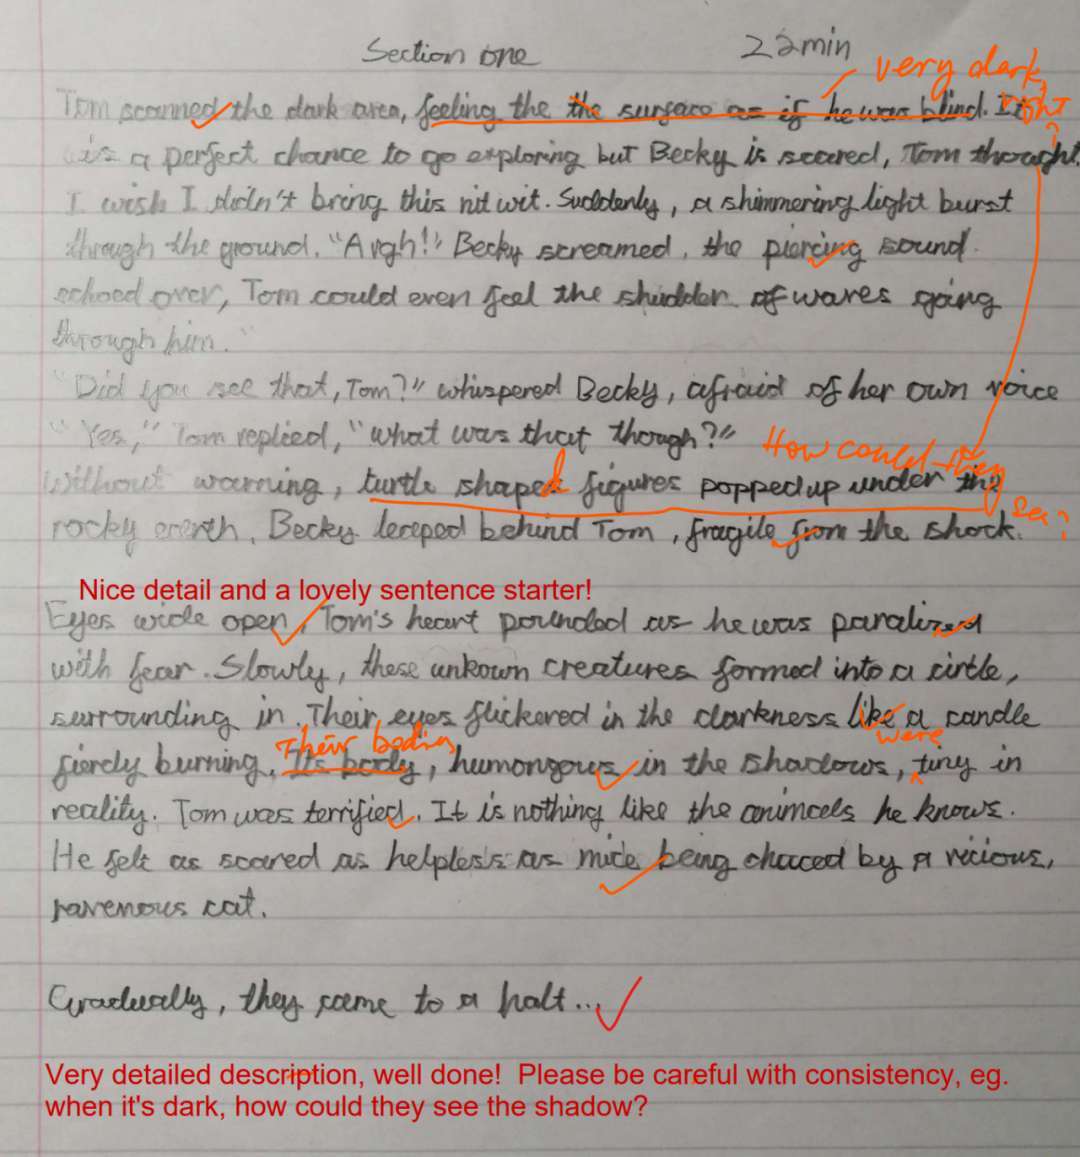 Section one 22min
very dark, right?
Tom scanned the dark area, feeling the the surface as if he was blind. It
is a perfect chance to go exploring but Becky is scared, Tom thought.
I wish I didn't bring this nit wit. Suddenly, a shimmering light burst
through the ground. "Argh!" Becky screamed, the piercing sound
echoed over, Tom could even feel the shudder of waves going
through him."
"Did you see that, Tom?" whispered Becky, afraid of her own voice
"Yes," Tom replied, "what was that though?"
How could they see?
Without warning, turtle shaped figures popped up under the
rocky earth. Becky leaped behind Tom, fragile from the shock.
Nice detail and a lovely sentence starter!
Eyes wide open, Tom's heart pounded as he was paralized
with fear. Slowly, these unkown creatures formed into a circle,
surrounding in. Their eyes flickered in the darkness like a candle
Their bodies were
fiercly burning. Its body, humongous in the shadows, tiny in
reality. Tom was terrified. It is nothing like the animals he knows.
He felt as scared as helpless as mice being chaced by a vicious,
ravenous cat.
Gradually, they came to a halt...
Very detailed description, well done! Please be careful with consistency, eg.
when it's dark, how could they see the shadow?